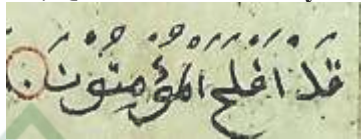 قَدْ اَفْلَحَ الْمُؤْمِنُوْنَ